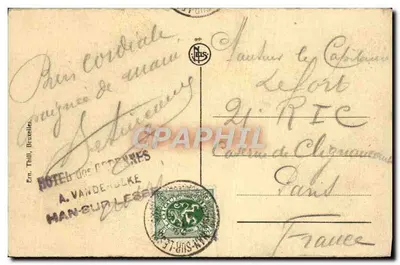 Bien cordiale
poignée de main
Ern. Thill, Bruxelles
HOTEL des ARDENNES
A. VANDE
HAN-SUR-LESSE
HAN-SUR-
NELS
CPARAPHIL
Monsieur le Capitaine
Lefort
21e RIC
Caserne de Clignancourt
Paris
France